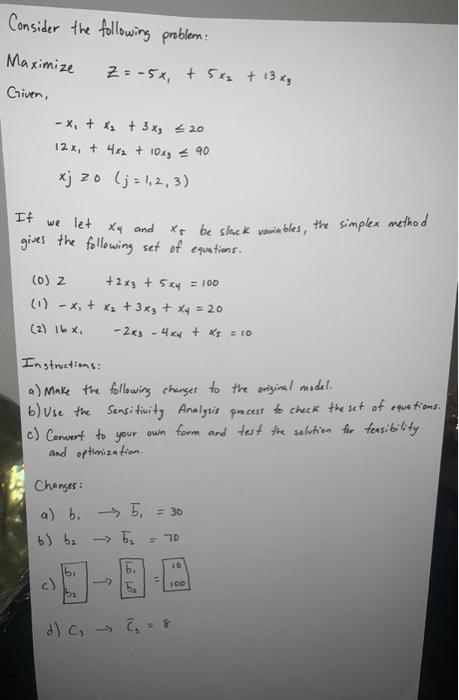 Consider the following problem:
Maximize Z = -5x₁ + 5x₂ + 13x₃
Given,
-x₁ + x₂ + 3x₃ ≤ 20
12x₁ + 4x₂ + 10x₃ ≤ 90
xj ≥ 0 (j = 1, 2, 3)
If we let x₄ and x₅ be slack variables, the simplex method
gives the following set of equations.
(0) Z +2x₃ + 5x₄ = 100
(1) -x₁ + x₂ + 3x₃ + x₄ = 20
(2) 16x₁ -2x₃ - 4x₄ + x₅ = 10
Instructions:
a) Make the following changes to the original model.
b) Use the Sensitivity Analysis process to check the set of equations.
c) Convert to your own form and test the solution for feasibility
and optimization.
Changes:
a) b₁ → b̅₁ = 30
b) b₂ → b̅₂ = 70
c) [b₁ b₂] → [b̅₁ b̅₂] = [10 100]
d) C₃ → C̅₃ = 8